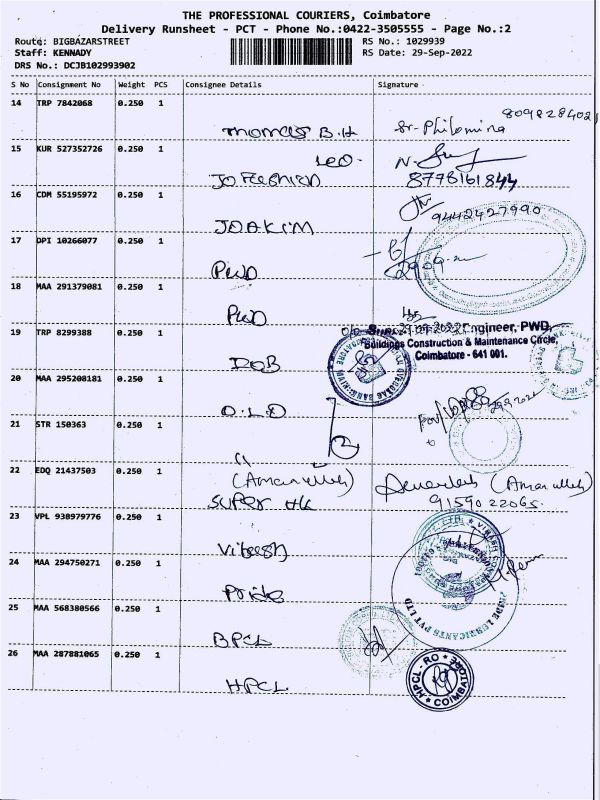 THE PROFESSIONAL COURIERS, Coimbatore
Delivery Runsheet - PCT - Phone No.:0422-3505555 - Page No.:2
Route: BIGBAZARSTREET RS No.: 1029939
Staff: KENNADY RS Date: 29-Sep-2022
DRS No.: DCJB102993902
S No Consignment No Weight PCS Consignee Details Signature
14 TRP 7842068 0.250 1
Thomas B.H Sr. Philomina
15 KUR 527352726 0.250 1
Leo.
8778161844
16 CDM 55195972 0.250 1
JOAKIM 9442427990
17 DPI 10266077 0.250 1
PWD
18 MAA 291379081 0.250 1
PWD
Engineer, PWD,
Buildings Construction & Maintenance Circle,
Coimbatore - 641 001.
19 TRP 8299388 0.250 1
20 MAA 295208181 0.250 1
21 STR 150363 0.250 1
22 EDQ 21437503 0.250 1
(Amanullah) (Amanullah)
SUPER 9159022065
23 VPL 930979776 0.250 1
24 MAA 294750271 0.250 1
Pride
PRIDE LUBRICANTS PVT LTD
25 MAA 568380566 0.250 1
BPCL
26 MAA 287881065 0.250 1
HPCL
HPCL-RO
COIMBATORE